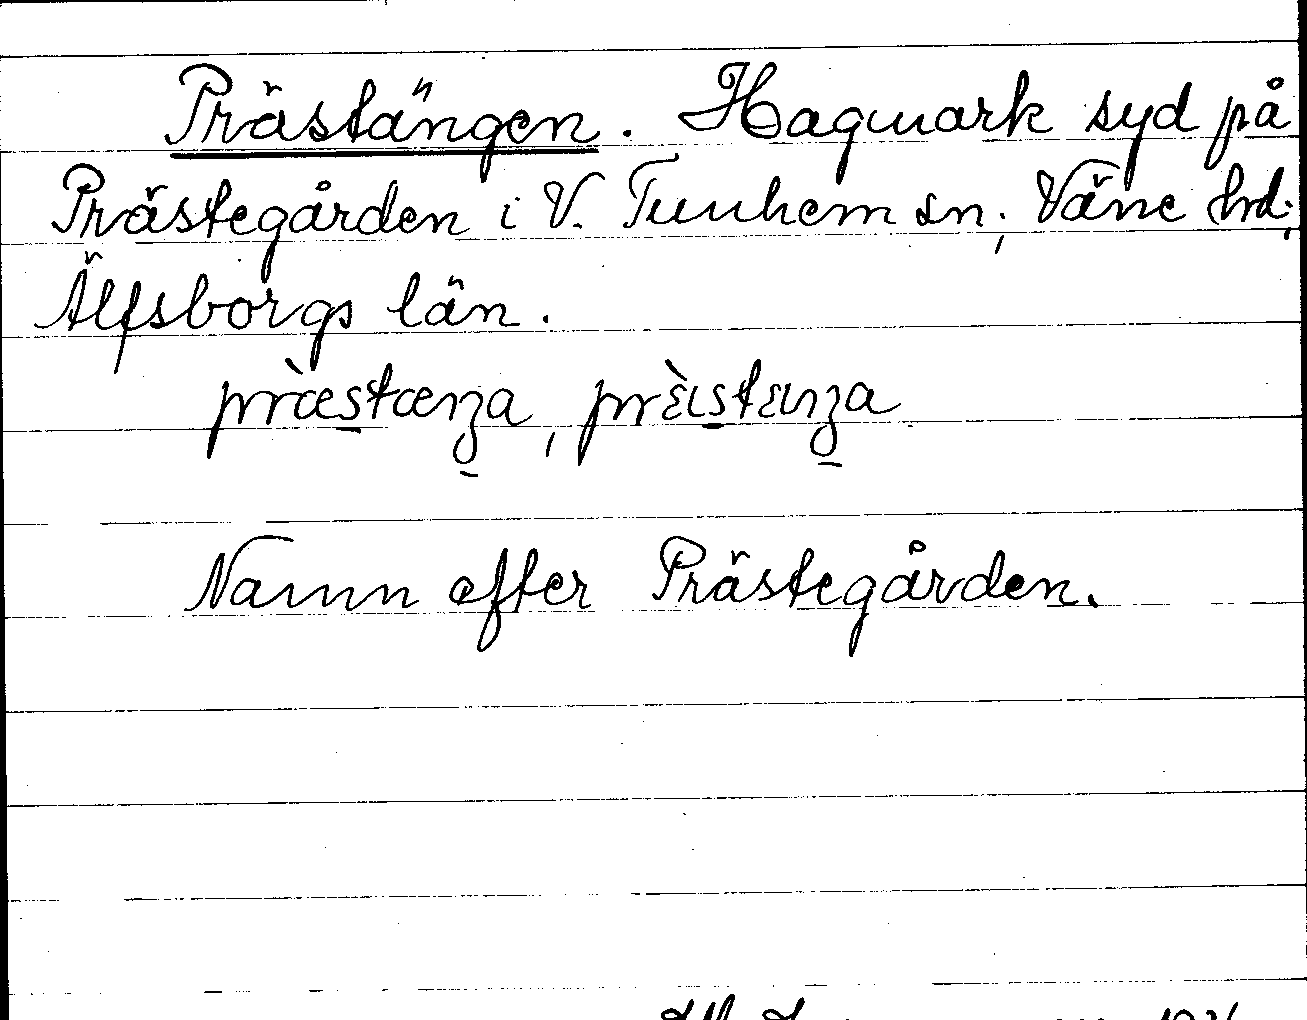 Prästängen. Hagmark syd på
Prästegården i V. Tunhem sn, Väne hrd,
Älfsborgs län.
præ̀stæŋa, prɛ̀ıstɛıŋa
Namn efter Prästegården.